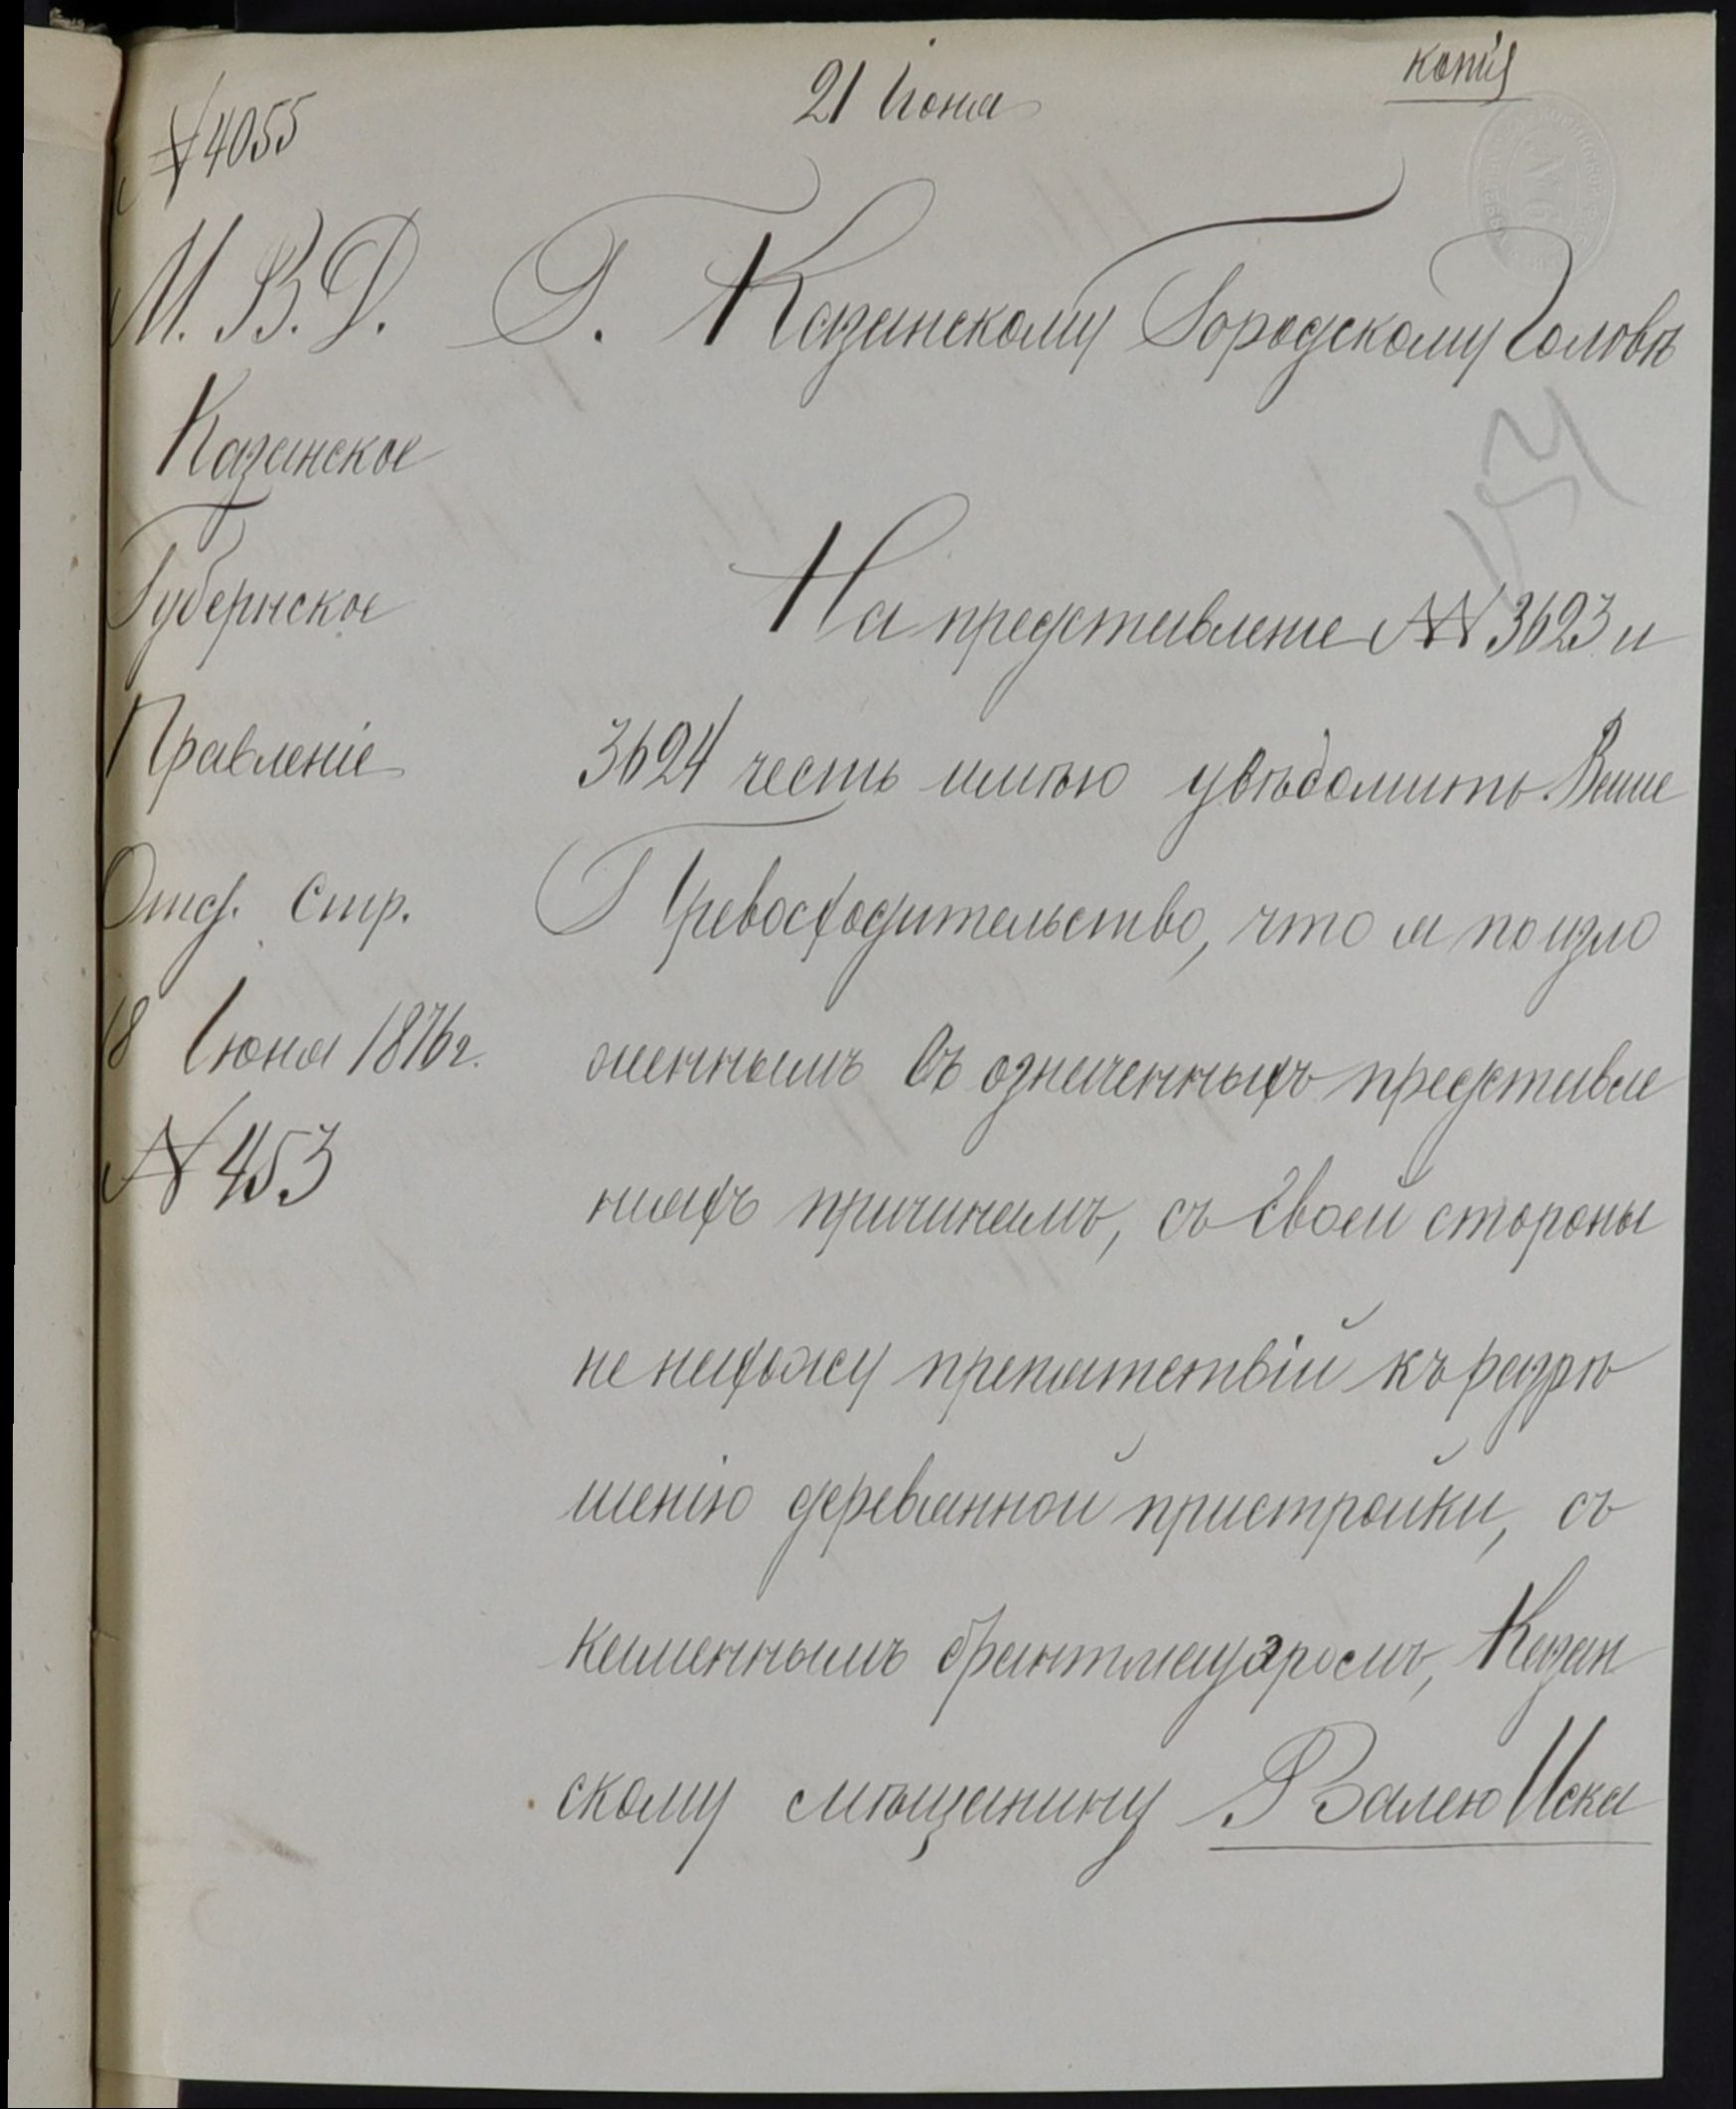 копія
21 Іюня
№ 4055
М. В. Д.
Казанское
Губернское
Правленіе
Отд. Стр.
18 Іюня 1876 г.
№ 453
Г. Казанскому Городскому Головѣ
На представленіе №№ 3623 и
3624 честь имѣю увѣдомить Ваше
Превосходительство, что я по изло
женнымъ въ означенныхъ представле
ніяхъ причинамъ, съ своей стороны
не нахожу препятствій къ разрѣ
шенію деревянной пристройки, съ
каменнымъ брантмауэромъ, Казан
скому мѣщанину Валею Иска